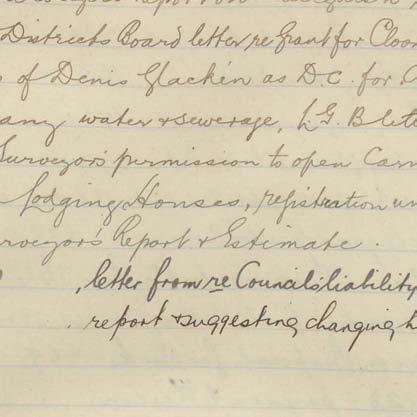 Report on
Districts Board letter re Grant for Cloon
of Denis Glacken as D.C. for
any water & sewerage, L.G. B lett
Surveyor's permission to open Carn
Lodging Houses, registration un
rveyor's Report & Estimate.
, letter from re Council's liability
. report & suggesting changing h